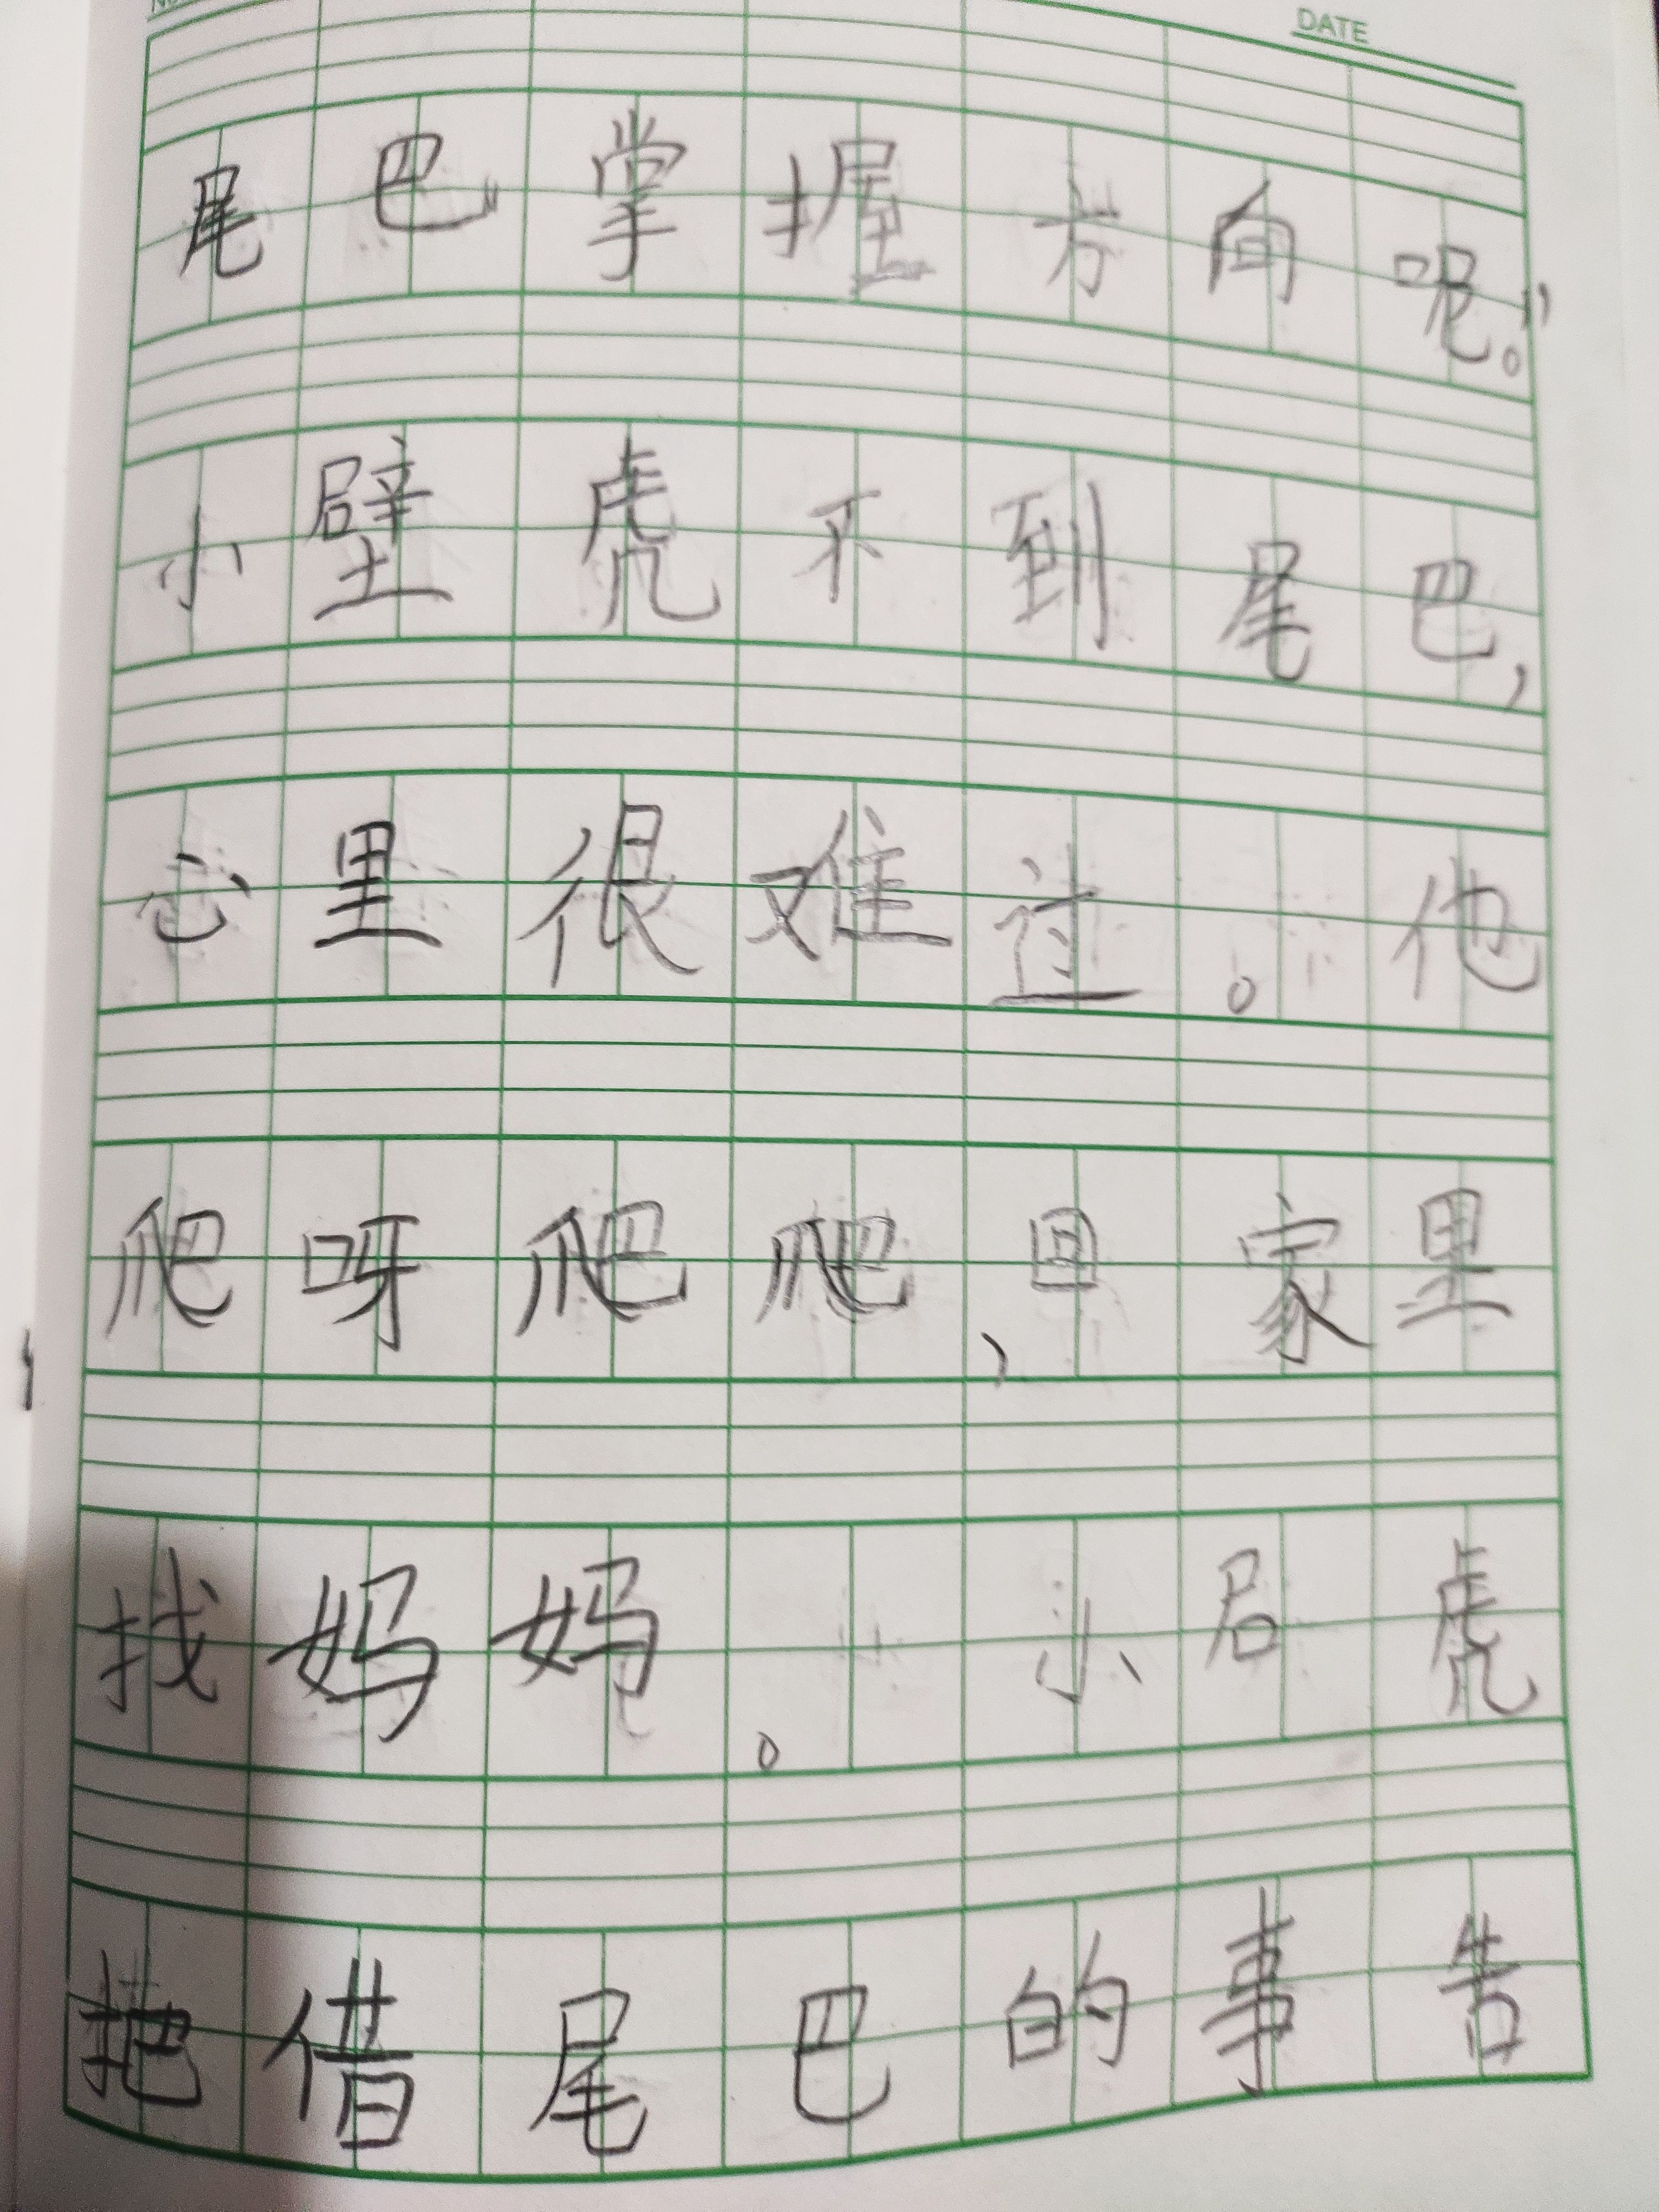 DATE
尾巴掌握方向呢。”
小壁虎不到尾巴,
心里很难过。他
爬呀爬爬,回家里
找妈妈。小虎
把借尾巴的事告